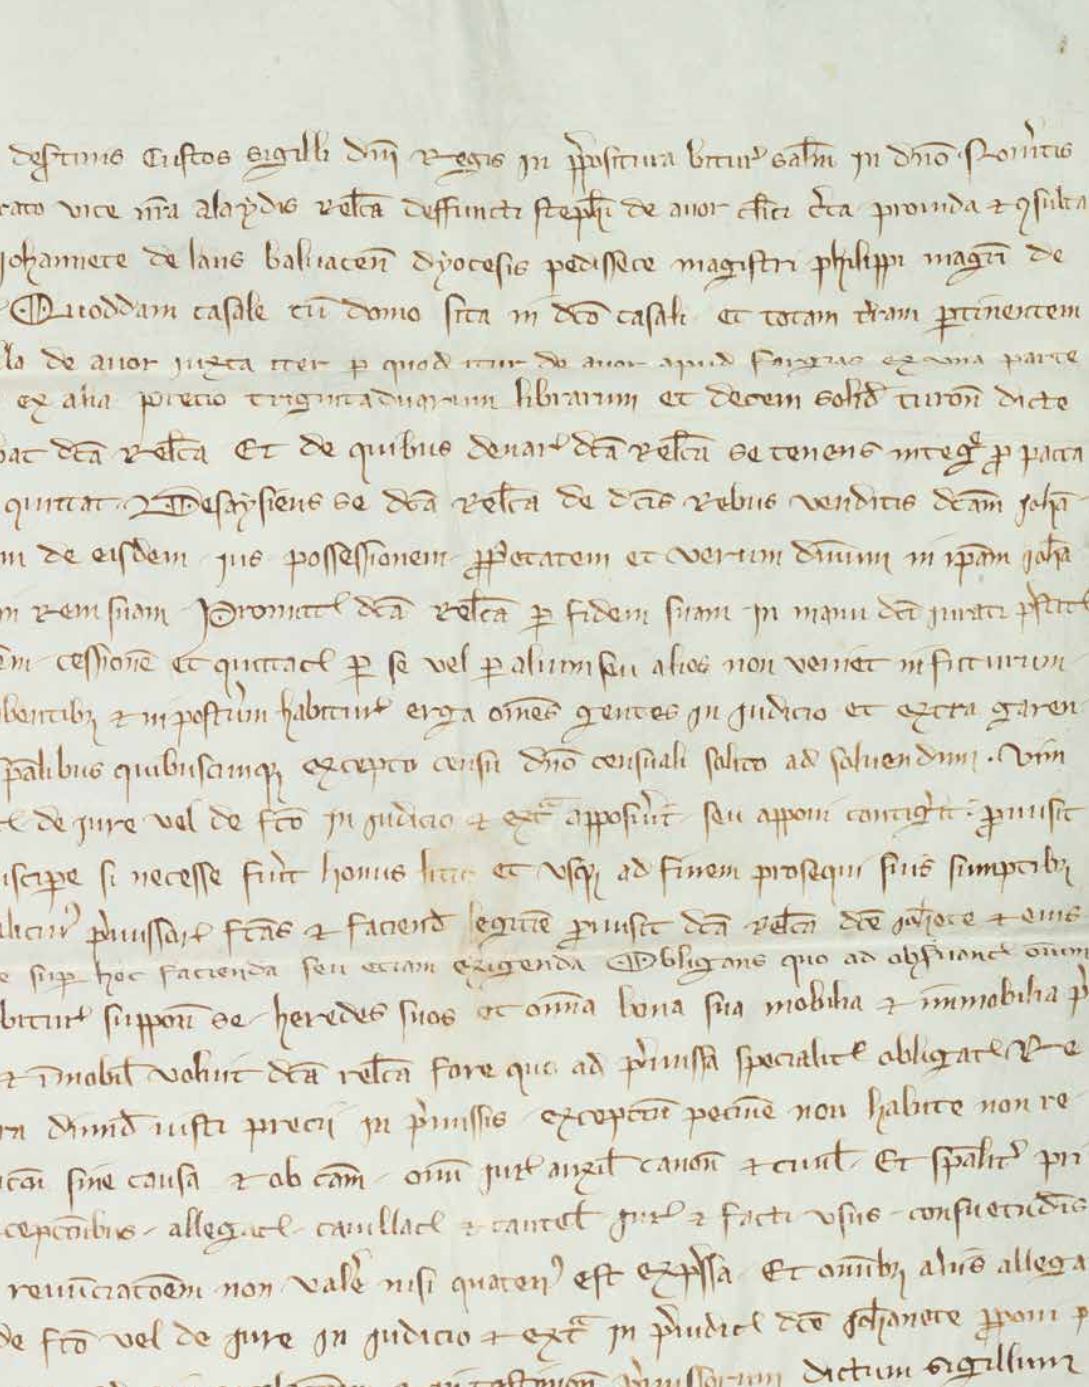 destinis Custos sigilli dni Regis in ppositura bitur salm in dno Noveritis
rato vice nra alaydis relca deffuncti stephi de avor clici certa provida et consulta
Johannete de laus balvacen dyocesis pedissece magistri philippi magri de
Quoddam casale cu domo sita in dco casali et totam terram pertinentem
la de avor iuxta iter per quod itur de avor apud fargias ex una parte
ex alia precio triginta duarum librarum et decem solid turon dicte
bat dca relca Et de quibus denar dca relca se tenens integre pro pacata
quittat Desaysiens se dca relca de dcis rebus venditis dcam Joha
m de eisdem ius possessionem proprietatem et verum dnium in ipam Joha
in rem suam Promitt dca relca per fidem suam in manu dci iurati prestit
em cessione et quittac per se vel per alium seu alios non veniet in futurum
bentibz et in posterum habitur erga omes gentes in iudicio et extra garen
palibus quibuscunqz excepto censu dno censuali solito ad solvendum. Um
de iure vel de fco in iudicio et extra apposuerit seu apponi contigerit promisit
uscipere si necesse fuerit honus litis et usqz ad finem prosequi suis sumptibz
premissar fcas et faciend legittie promisit dca relca dce Johete et eius
e super hoc facienda seu etiam exigenda Obligans quo ad observanc omium
bitur suppon se heredes suos et omnia bona sua mobilia et immobilia
et imobil voluit dca relca fore quo ad premissa specialit obligat Re
ra dimid iusti precii in premissis exceptem pecunie non habite non re
sine causa et ob cam omi iur auxil canon et civil Et spaliter pri
ceptoibus allegac cavillac et cautel iur et facti usus consuetudis
renunciacoem non valere nisi quaten est expressa Et omibz aliis allega
de fco vel de iure in iudicio et extra in preiudic dce Johanete proponi
premissorum dictum sigillum